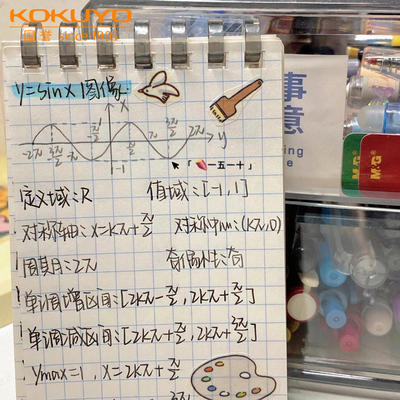 KOKUYO
国誉 since 1905
y=sinx图像
x
y
-2π 3π/2 -π π/2 π/2 π 3π/2 2π
-1
「一五一十」
事
意
M&G
M&G
定义域:R 值域:[-1,1]
对称轴:x=kπ+π/2 对称中心:(kπ,0)
周期:2π 奇偶性:奇
单调增区间:[2kπ-π/2,2kπ+π/2]
单调减区间:[2kπ+π/2,2kπ+3π/2]
ymax=1,x=2kπ+π/2